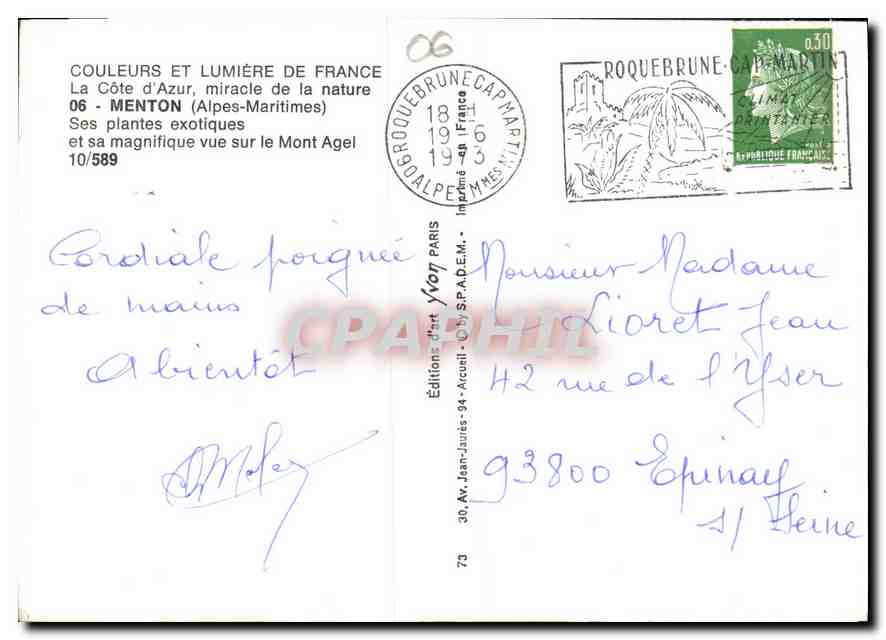 06
COULEURS ET LUMIÈRE DE FRANCE
La Côte d'Azur, miracle de la nature
06 - MENTON (Alpes-Maritimes)
Ses plantes exotiques
et sa magnifique vue sur le Mont Agel
10/589
06 ROQUEBRUNE CAP MARTIN
18 H
19 - 6
1973
ALPES MMES
ROQUEBRUNE-CAP-MARTIN
CLIMAT
PRINTANIER
0,30
POSTES
REPUBLIQUE FRANÇAISE
Cordiale poignée
de mains
A bientôt
Éditions d'art Yvon PARIS
73 30, Av. Jean-Jaurès - 94 - Arcueil - © by S.P.A.D.E.M. - Imprimé en France
Monsieur Madame
Lioret Jean
42 rue de l'Yser
93800 Epinay
s/ Seine
CPAPHIL